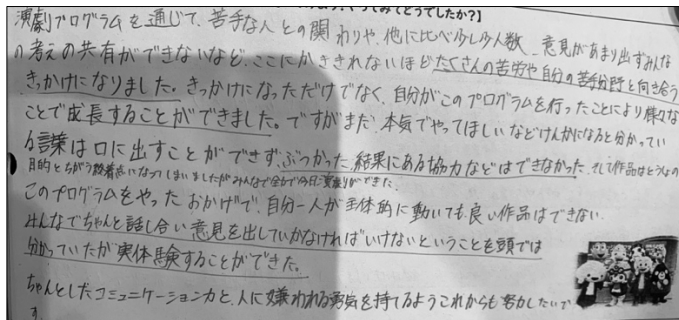 やってみてどうでしたか?】
演劇プログラムを通じて、苦手な人との関わりや、他に比べ少し少人数、意見があまり出ずみんな
の考えの共有ができないなど、ここにかききれないほどたくさんの苦労や自分の苦手分野と向き合う
きっかけになりました。きっかけになっただけでなく、自分がこのプログラムを行ったことにより様々な
ことで成長することができました。ですがまだ、本気でやってほしいなどけんかになると分かってい
る言葉は口に出すことができず、ぶつかった結果にある協力などはできなかった。そして作品はとうしょの
目的とちがう着点になってしまいましたがみんなで全力で今日に演じきりができた。
このプログラムをやったおかげで、自分一人が主体的に動いても良い作品はできない
みんなでちゃんと話し合い意見を出していかなければいけないということを頭では
分かっていたが実体験することができた。
ちゃんとしたコミュニケーション力と、人に嫌われる勇気を持てるようこれからも努力したいで
す